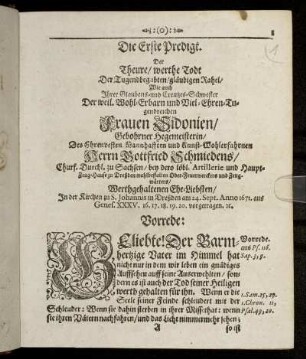 Die Erste Predigt.
Der
Theure/ werthe Todt
Der Tugendbegabten/gläubigen Rahel/
Wie auch
Ihrer Glaubens-und Creutzes-Schwester
Der weil. Wohl-Erbarn und Viel-Ehren-Tu-
gendreichen
Frauen Sidonien/
Gebohrner Hegewisterin/
Des Ehrenvesten Manhafften und Kunst-Wohlerfahrnen
Herrn Gottfried Schmiedens/
Churf. Durchl. zu Sachsen/ bey dero löbl. Artillerie und Haupt-
Zeug-Hause zu Dreßden
Werthgehaltenen Ehe-Liebsten/
In der Kirchen zu S. Johannis in Dreßden am 24. Sept. Anno 1671. aus
Genes. XXXV. 16. 17. 18. 19. 20. vorgetragen.
Vorrede:
Geliebte! Der Barm-
hertzige Vater im Himmel hat
nicht nur in dem wir leben ein gnädiges
Auffsehn auff seine Auserwehlten/ son-
dern es ist auch der Tod seiner Heiligen
werth gehalten für ihn. Wenn er die
Seele seiner Feinde schleudert mit der
Schleuder: Wenn sie dahin sterben in ihrer Missethat: wenn
sie ihren Vätern nachfahren/ und das Licht nimmermehr sehen:
A
so ist
Vorrede.